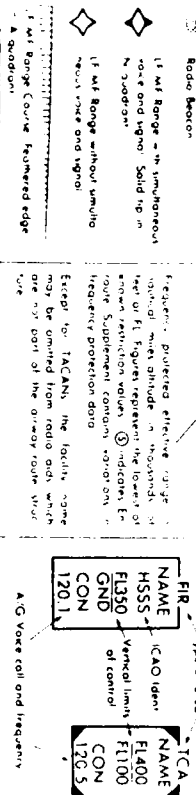 Radio Beacon
LF MF Range with simultaneous
voice and signal Solid tip in
N quadrant
LF MF Range without simulta
neous voice and signal
LF MF Range Course Feathered edge
A quadrant
Frequency protected effective range
nautical miles altitude in thousands of
feet or FL Figures represent the lowest of
known restriction values Ⓢ indicates En
route Supplement contains variations in
frequency protection data
Except for TACANs the facility name
may be omitted from radio aids which
are not part of the airway route struc
ture
FIR
NAME
HSSS
FL350
GND
CON
120.1
ICAO Ident
Vertical limits
of control
TCA
NAME
FL400
FL100
CON
120.5
A/G Voice call and frequency